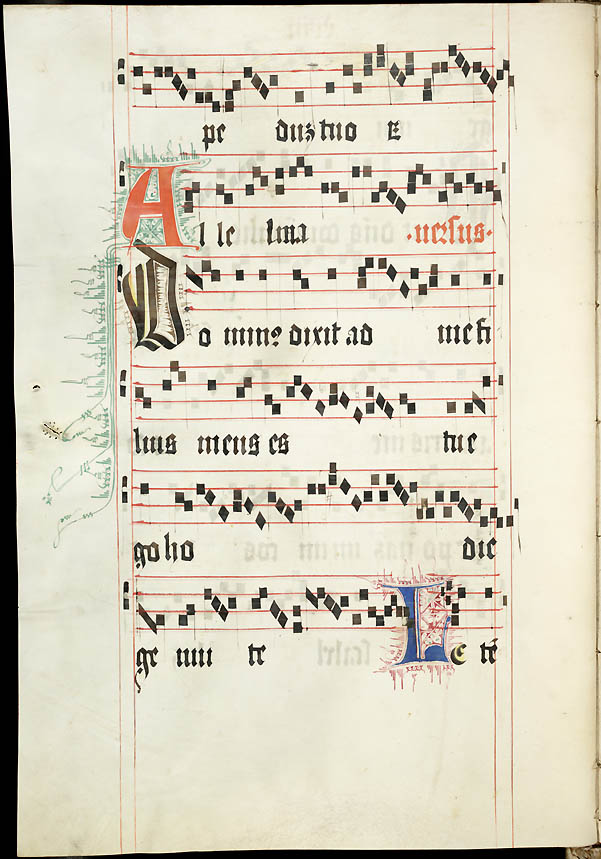 pe duʒ tuo E
Al le luia ·uersus·
Do minꝰ dixit ad me fi
lius meus es tu e
go ho die
ge nui te Le tē